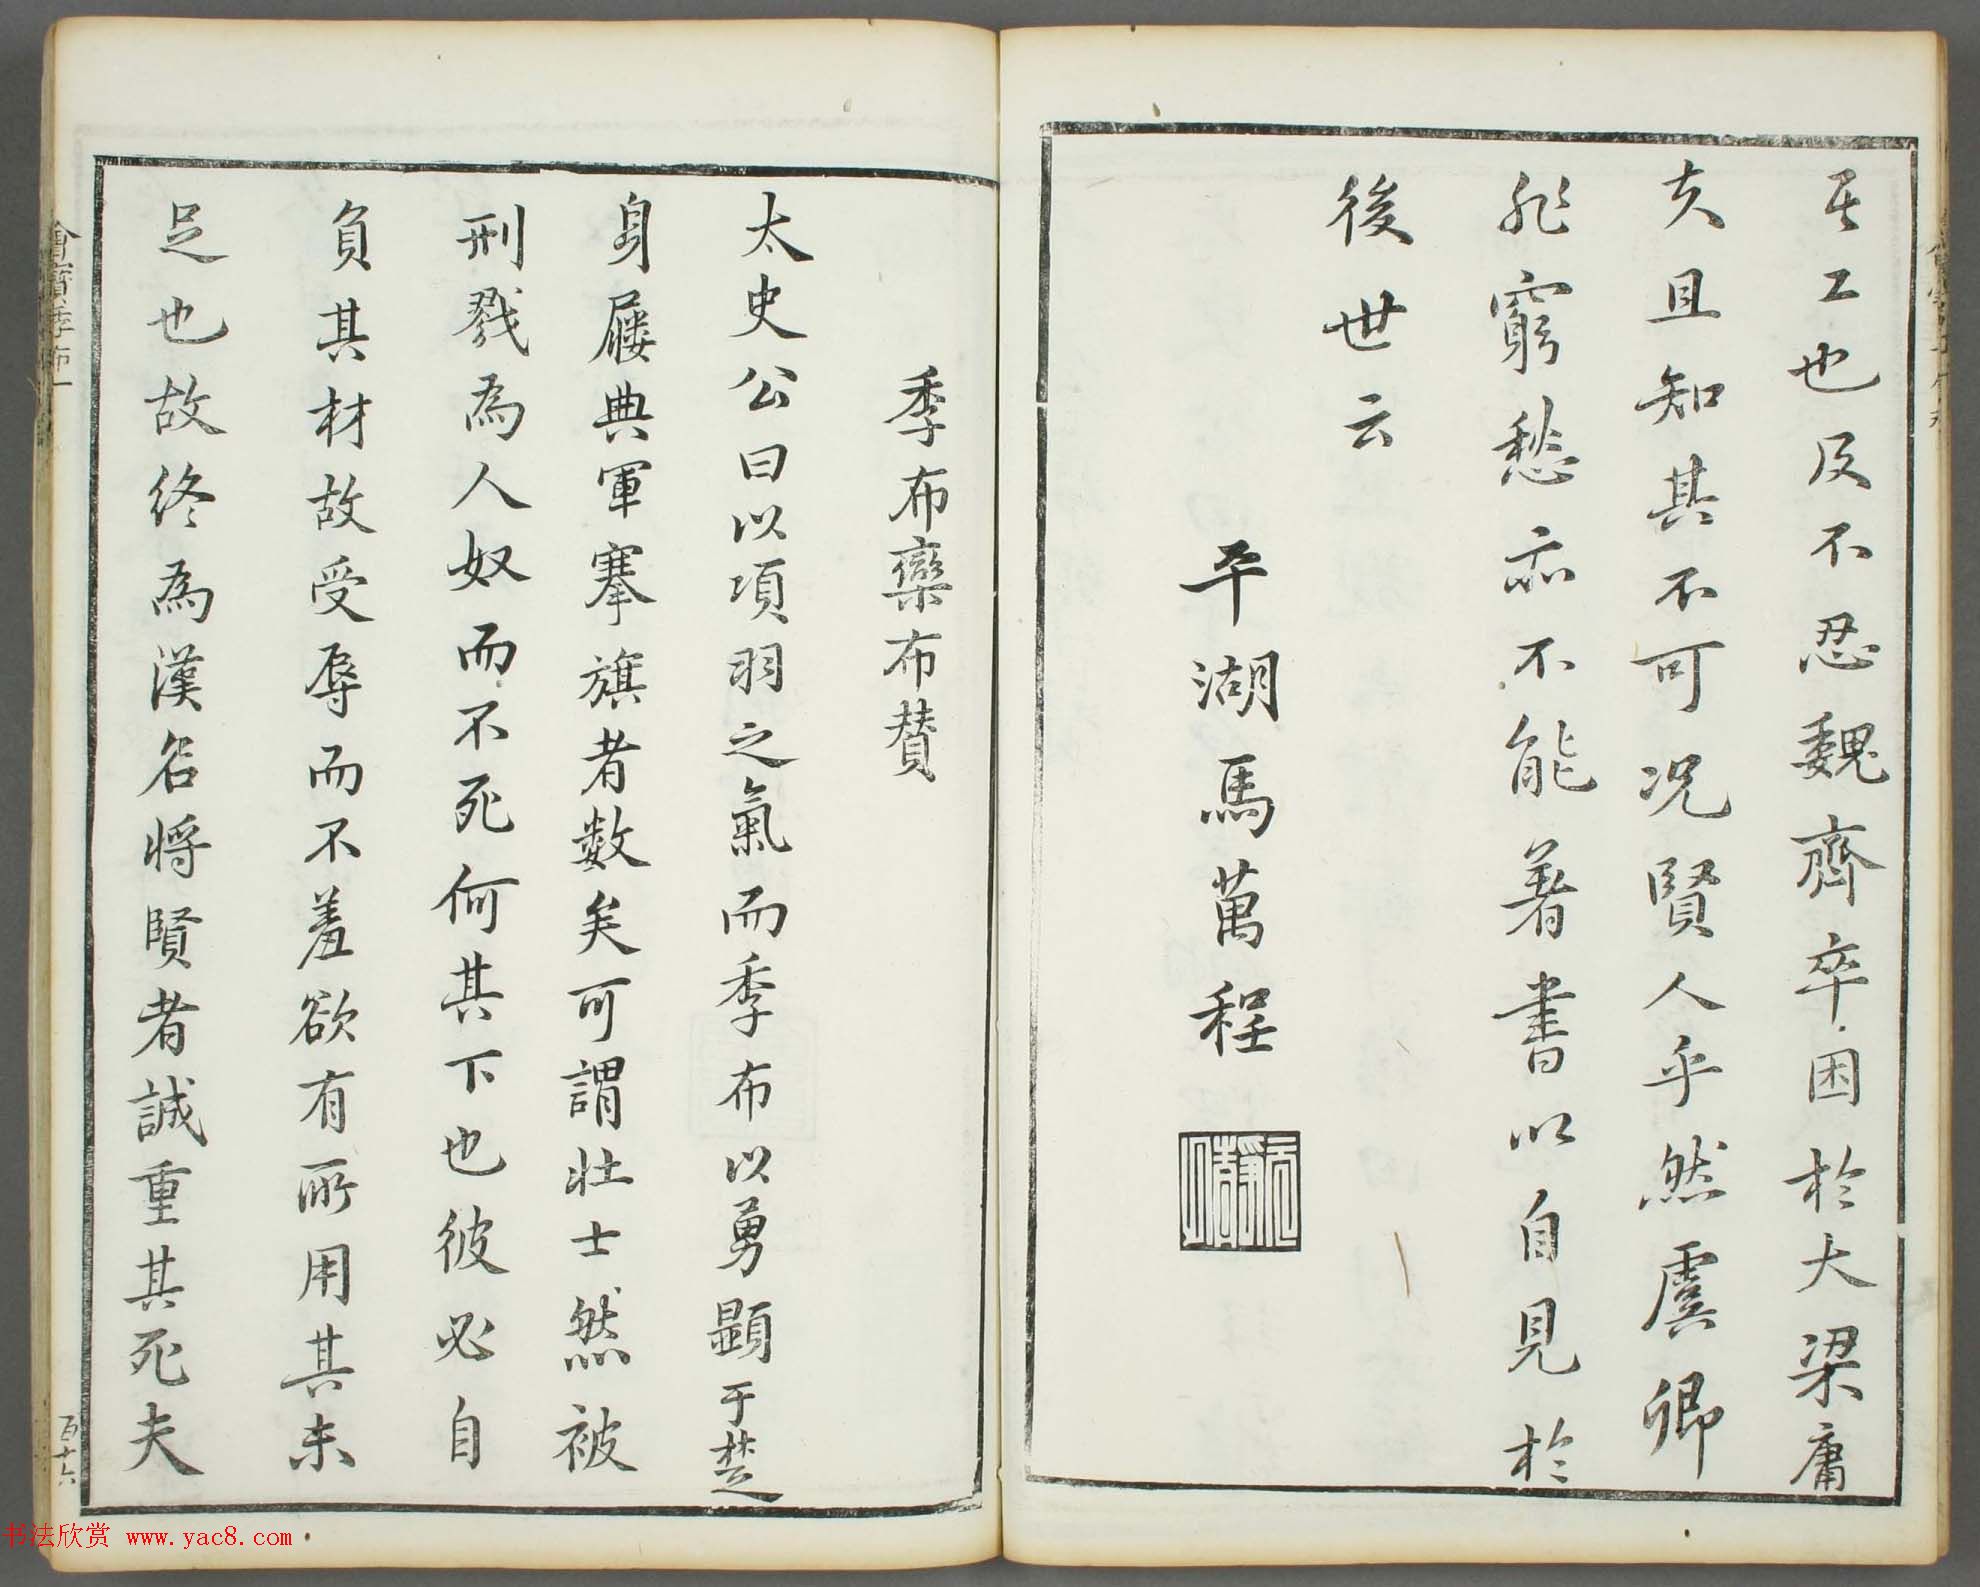 其工也及不忍魏齊卒困於大梁庸
夫且知其不可況賢人乎然虞卿
非窮愁亦不能著書以自見於
後世云
平湖馬萬程
季布欒布贊
太史公曰以項羽之氣而季布以勇顯于楚
身屨典軍搴旗者數矣可謂壯士然被
刑戮為人奴而不死何其下也彼必自
負其材故受辱而不羞欲有所用其未
足也故終為漢名將賢者誠重其死夫
會寶季布一
百十六
书法欣赏 www.yac8.com